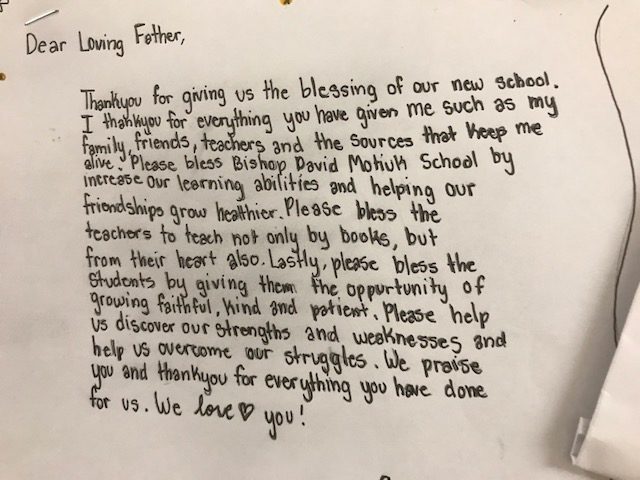 Dear Loving Father,
Thankyou for giving us the blessing of our new school.
I thankyou for everything you have given me such as my
family, friends, teachers and the sources that keep me
alive. Please bless Bishop David Motiuk School by
increase our learning abilities and helping our
friendships grow healthier. Please bless the
teachers to teach not only by books, but
from their heart also. Lastly, please bless the
students by giving them the oppurtunity of
growing faithful, kind and patient. Please help
us discover our strengths and weaknesses and
help us overcome our struggles. We praise
you and thankyou for everything you have done
for us. We love♡ you!